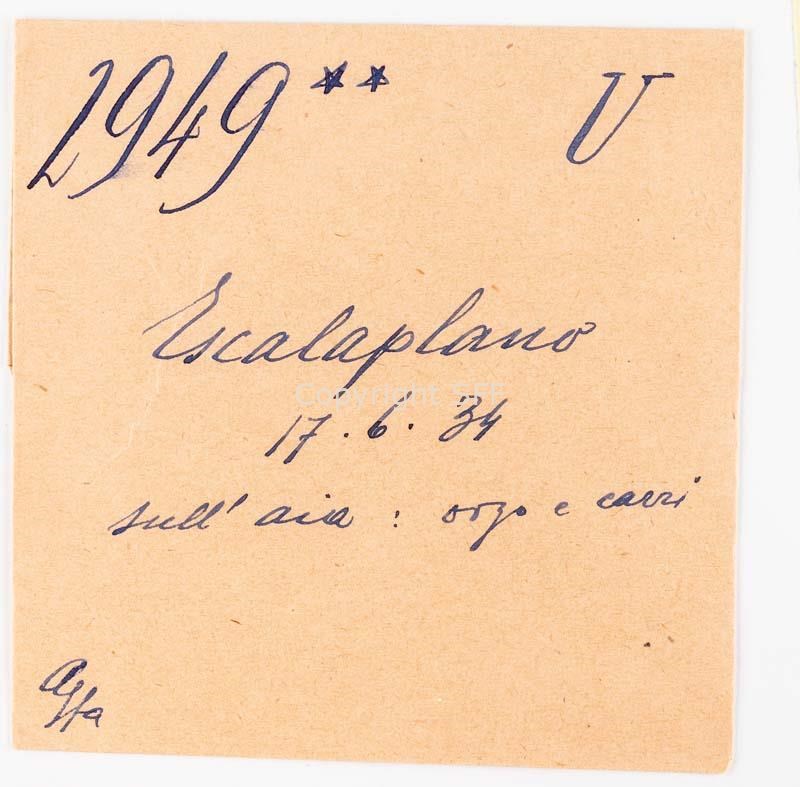 1949** V
Escalaplano
Copyright SFF
17.6.34
sull'aia: orzo e carri
Agfa